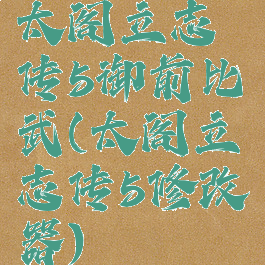 太阁立志
传5御前比
武(太阁立
志传5修改
器)